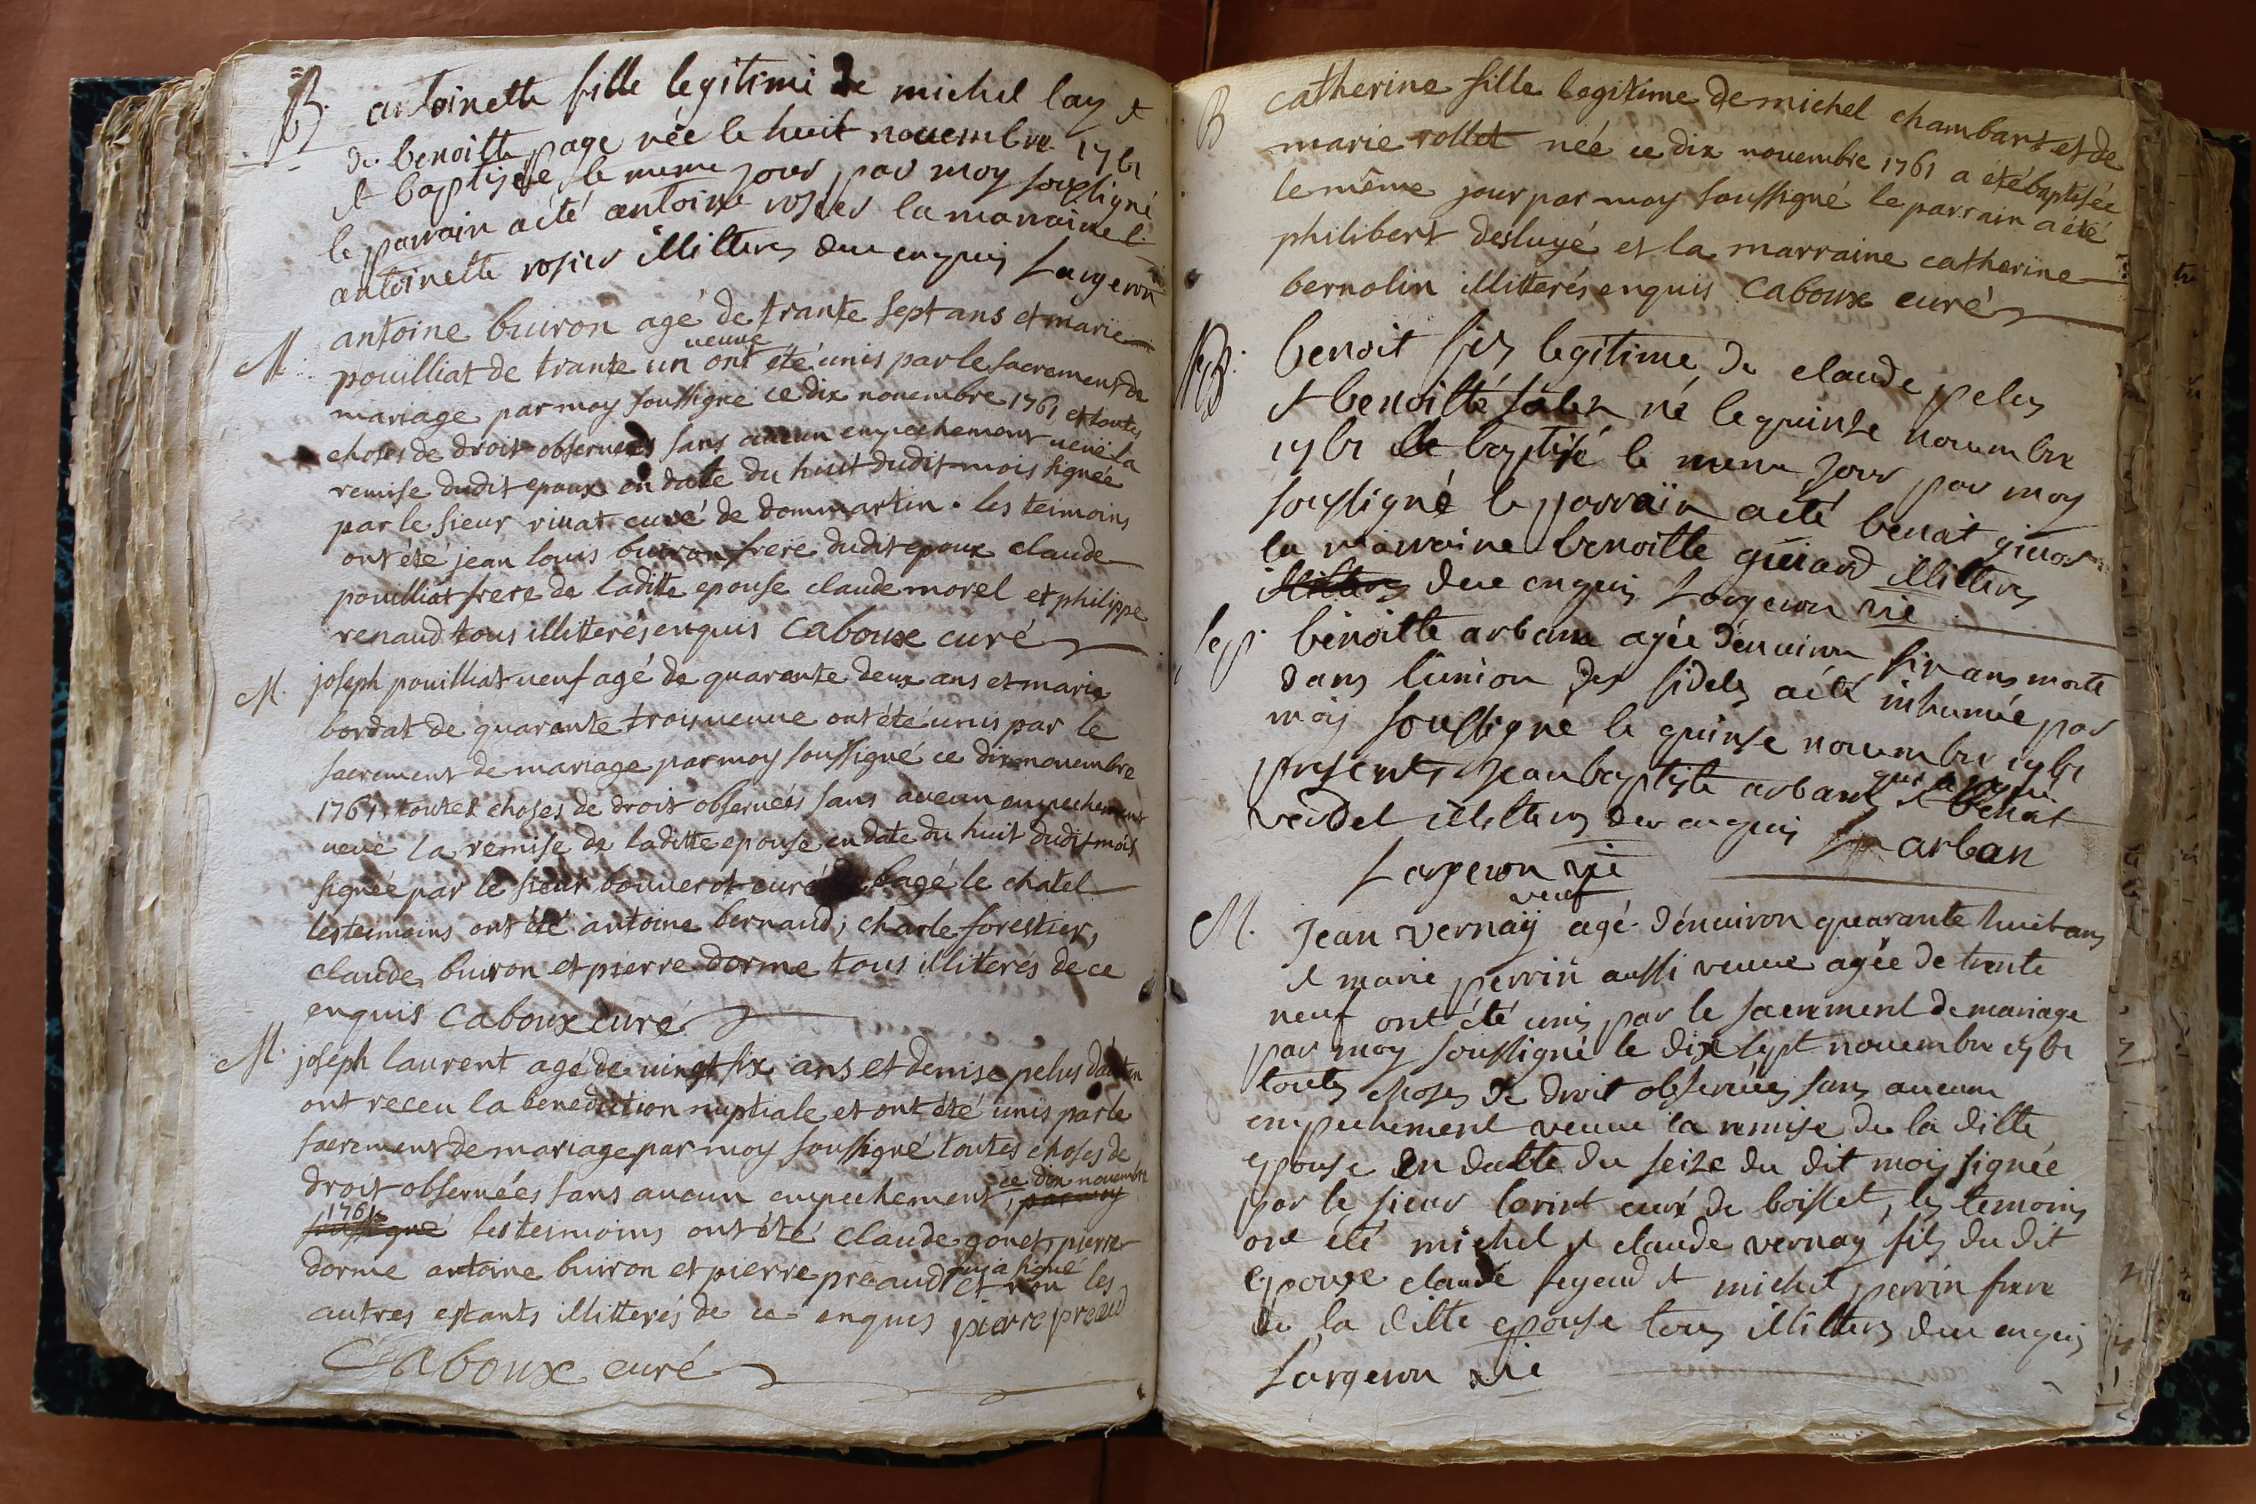 B. antoinette fille legitime de michel lay et
de benoitte page née le huit novembre 1761
et baptisée le meme jour par moy soussigné
le parrain a été antoine rosier la marraine
antoinette rosier illitterés de ce enquis Largeron
M. antoine buiron agé de trante sept ans et marie
veuve
pouilliat de trante un ont été unis par le sacrement de
mariage par moy soussigné ce dix nouembre 1761 et toutes
choses de droit obseruées sans aucun empechement ueüe la
remise dudit epoux en date du huit dudit mois signée
par le sieur riuat curé de dommartin. les teimoins
ont été jean louis buiron frere dudit epoux claude
pouilliat frere de laditte epouse claude morel et philippe
renaud tous illitterés enquis Caboux curé
M. joseph pouilliat ueuf agé de quarante deux ans et marie
bordat de quarante trois ueuue ont été unis par le
sacrement de mariage par moy soussigné ce dix nouembre
1761 toutes choses de droit obseruées sans aucun empechement
ueüe la remise de laditte epouse en date du huit dudit mois
signée par le sieur bouuerot curé bagé le chatel
les teimoins ont été antoine bernaud, charle forestier,
claude buiron et pierre dorme tous illiterés de ce
enquis Caboux curé
M. joseph laurent agé de uingt six ans et denise pelus
ont receu la benediction nuptiale et ont été unis par le
sacrement de mariage par moy soussigné toutes choses de
ce dix nouembre
droit obseruées sans aucun empechement, par moy
1761
soussigné les teimoins ont été claude gonet, pierre
qui a signé
dorme antoine buiron et pierre preaud et non les
autres estants illitterés de ce enquis pierre preaud
Caboux curé
B catherine fille legitime de michel chambard et de
marie rollet née ce dix nouembre 1761 a été baptisée
le même jour par moy soussigné le parrain a été
philibert desluyé et la marraine catherine
bernolin illitterés enquis Caboux curé
B. benoit fils legitime de claude pelus
et benoitte né le quinse novembre
1761 et baptisé le meme jour par moy
soussigné le parrain a été benoit
la marraine benoitte guiard illitterés
illitterés de ce enquis Largeron vic
Sep. benoitte arbans agée d'enuiron six ans morte
dans l'union des fideles a été inhumée par
moy soussigné le quinse novembre 1761
presents Jean baptiste arbans et benoit
qui a signé
verdel illitterés de ce enquis arban
Largeron vic
veuf
M. Jean vernaÿ agé d'enuiron quarante huit ans
et marie perrin aussi veuue agée de trente
neuf ont été unis par le sacrement de mariage
par moy soussigné le dix sept nouembre 1761
toutes choses de droit obseruées sans aucun
empechement veuue la remise de la ditte
epouse en datte du seize du dit mois signée
par le sieur lorint curé de boisset, les temoins
ont été michel et claude vernay fils du dit
epoux claude feyeud et michel perrin frere
de la ditte epouse tous illitterés de ce enquis
Largeron vic